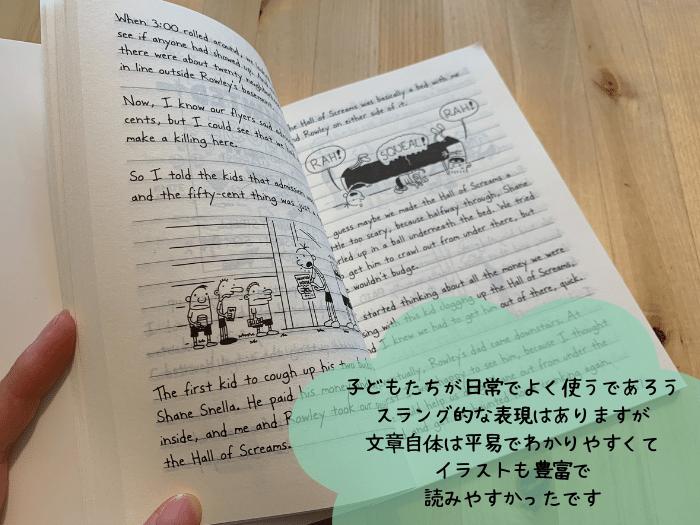 When 3:00 rolled around, we
see if anyone had showed up. And
there were about twenty neighbor
in line outside Rowley's basement
Now, I know our flyers said
cents, but I could see that we
make a killing here.
So I told the kids that admission
and the fifty-cent thing was just a
The first kid to cough up his two
Shane Snella. He paid his money
inside, and me and Rowley took our
the Hall of Screams.
he Hall of Screams was basically a bed with me
nd Rowley on either side of it.
RAH!
SQUEAL!
RAH!
guess maybe we made the Hall of Screams a
tle too scary, because halfway through, Shane
rled up in a ball underneath the bed. We tried
o get him to crawl out from under there, but
wouldn't budge.
started thinking about all the money we were
sing with this kid clogging up the Hall of Screams,
d I knew we had to get him out of there, quick.
Eventually, Rowley's dad came downstairs. At
to see him, because I thought
out from under the
going again.
子どもたちが日常でよく使うであろう
スラング的な表現はありますが
文章自体は平易でわかりやすくて
イラストも豊富で
読みやすかったです